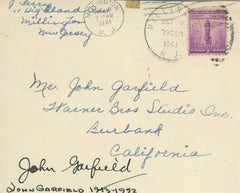 Highland Ave
Millington
New Jersey
MILLINGTON
1941
N. J.
1941
N. J.
Mr. John Garfield
Warner Bros Studio Inc.
Burbank
California
John Garfield
JOHN GARFIELD 1913-1952